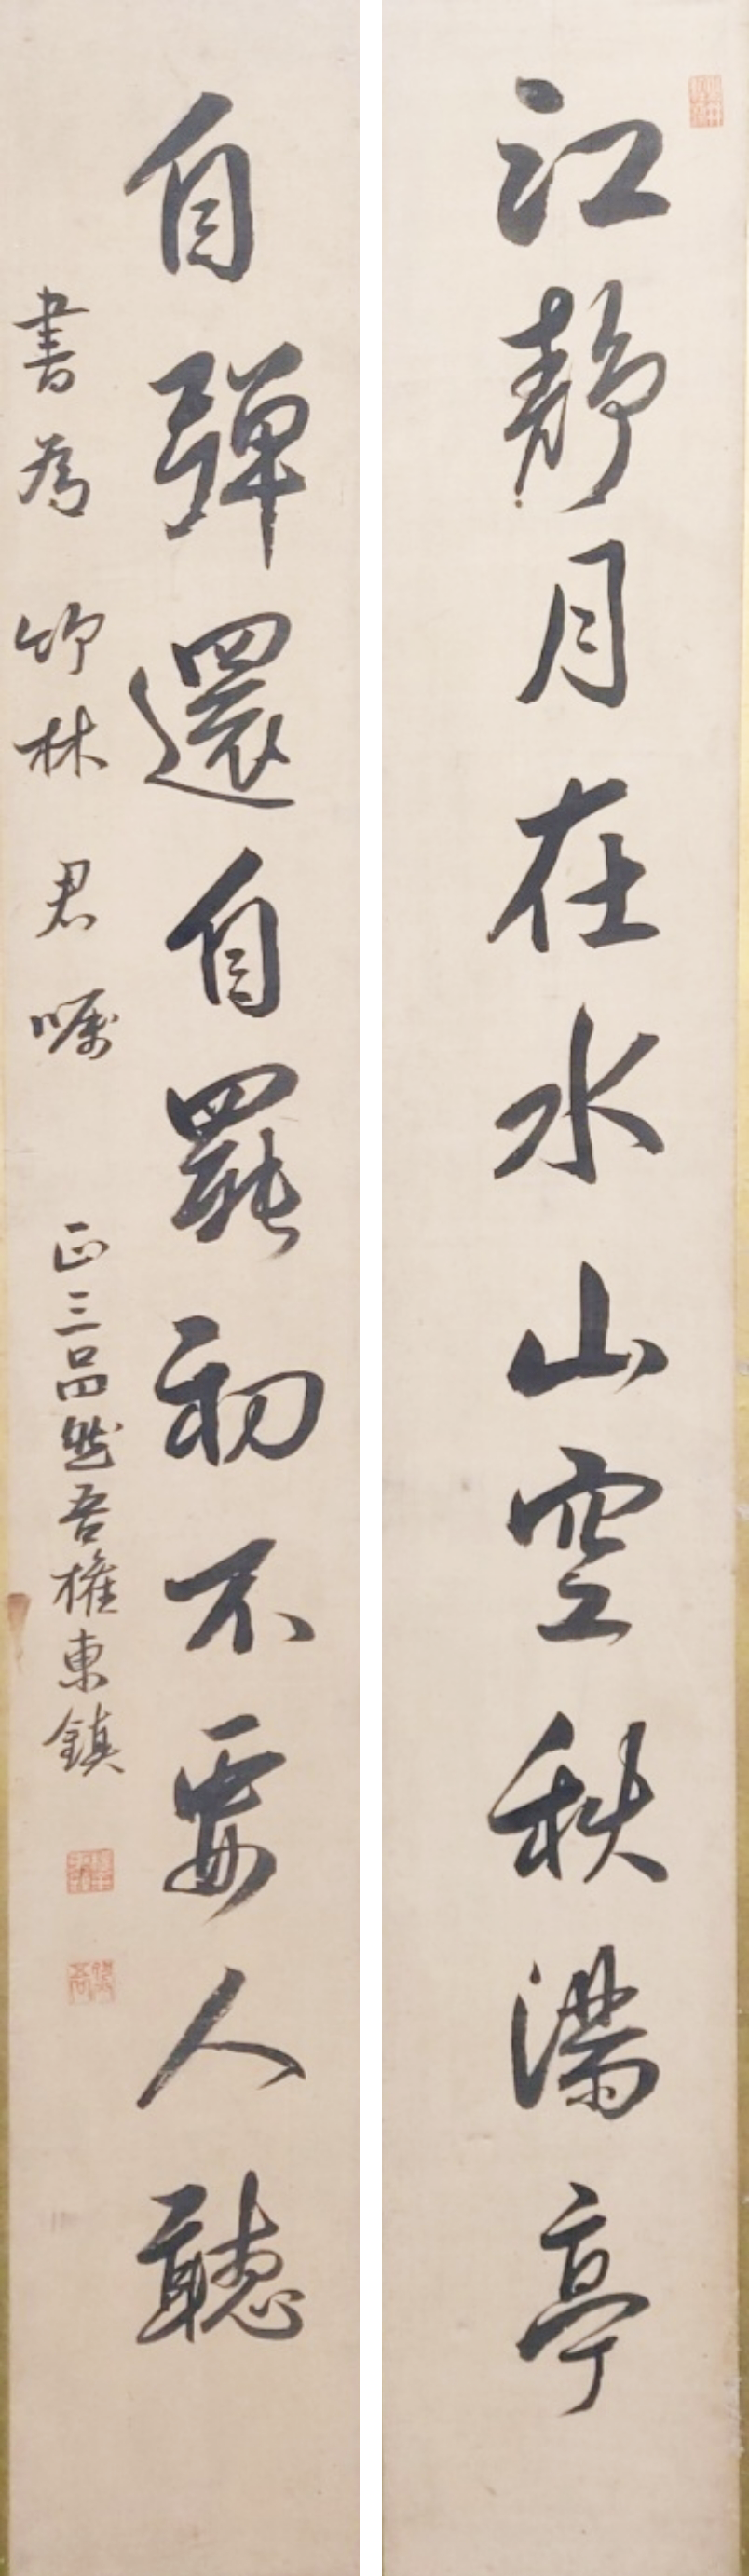 江靜月在水山空秋滿亭
自彈還自罷初不要人聽
書為竹林君囑
正三品然吾權東鎮